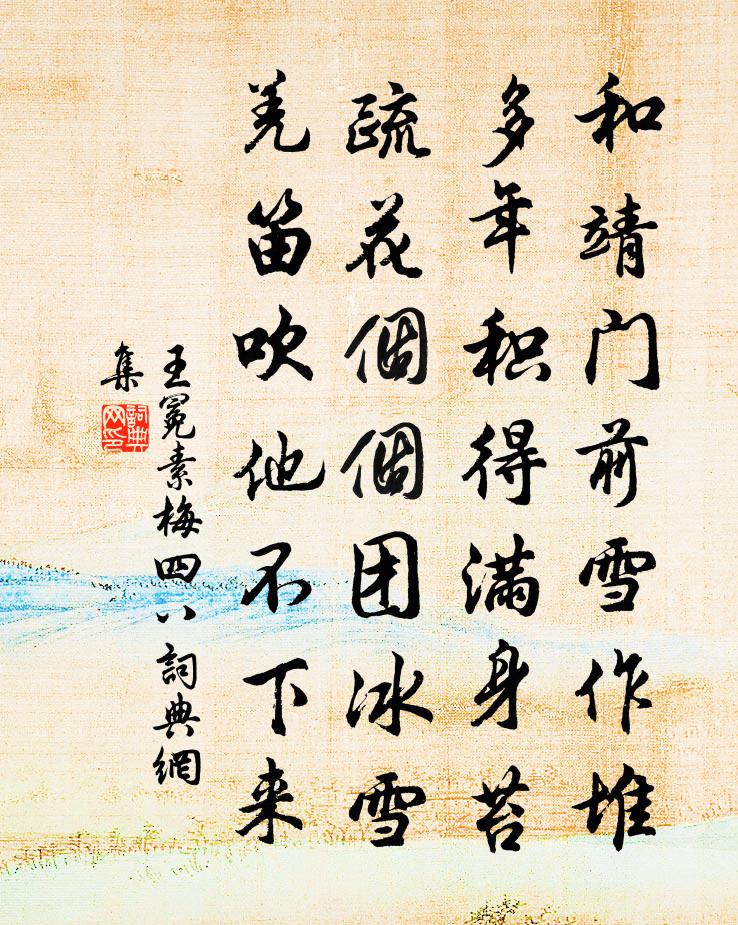 和靖门前雪作堆
多年积得满身苔
疏花個個团冰雪
羌笛吹他不下来
王冕素梅四八詞典網
集
詞典
网印